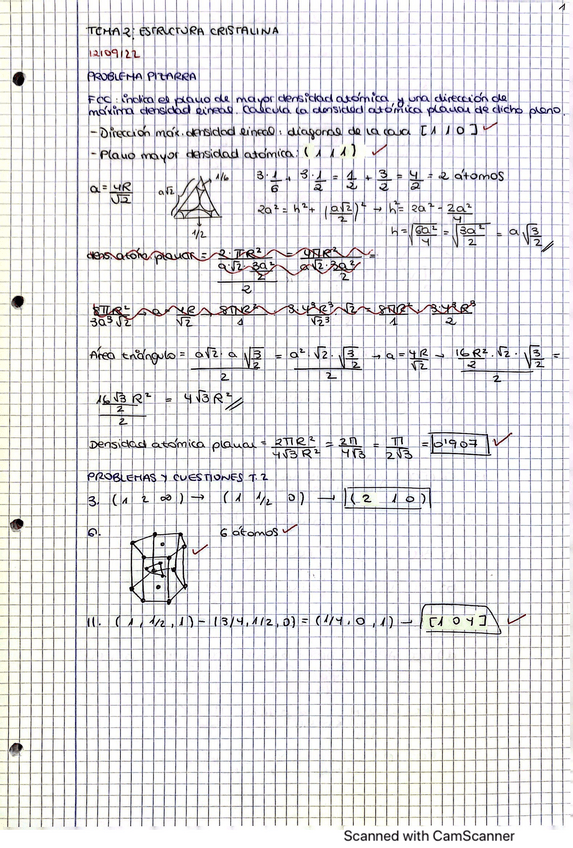 1
TEMA 2: ESTRUCTURA CRISTALINA
12/09/22
PROBLEMA PIZARRA
FCC: indica el plano de mayor densidad atómica, y una dirección de
máxima densidad lineal. Calcula la densidad atómica planar de dicho plano.
- Dirección máx. densidad lineal: diagonal de la cara [1 1 0] ✓
- Plano mayor densidad atómica: (1 1 1) ✓
a = 4R/√2 a√2 1/6 1/2 3·1/6 + 3·1/2 = 1/2 + 3/2 = 4/2 = 2 átomos
2a² = h² + (a√2/2)² → h² = 2a² - 2a²/4
h = √(6a²/4) = √(3a²/2) = a√(3/2)
Área triángulo = (a√2 · a√(3/2))/2 = (a²·√2·√(3/2))/2 → a = 4R/√2 → (16R²/2 · √2 · √(3/2))/2 =
(16√3 R²/2)/2 = 4√3 R²
Densidad atómica planar = 2πR²/4√3R² = 2π/4√3 = π/2√3 = 0'907 ✓
PROBLEMAS Y CUESTIONES T.2
3. (1 2 ∞) → (1 1/2 0) → (2 1 0)
6. 6 átomos ✓
11. (1, 1/2, 1) - (3/4, 1/2, 0) = (1/4, 0, 1) → [1 0 4] ✓
Scanned with CamScanner